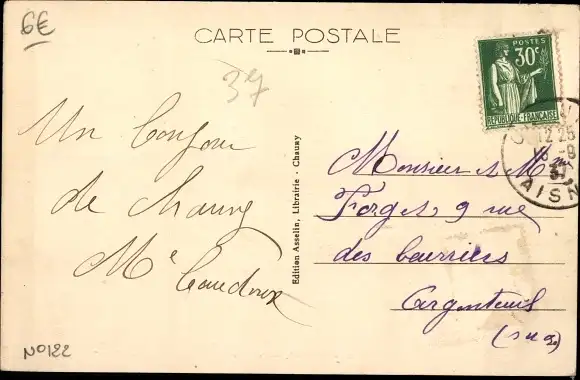 6€
CARTE POSTALE
37
POSTES
30c
REPUBLIQUE-FRANÇAISE
12 25
-9
37
AISN
Un bonjour
de Chauny
Me
Edition Asselin, Librairie - Chauny
Monsieur & Mme
Forges, 9 rue
des
Argenteuil
(S & O)
No 122